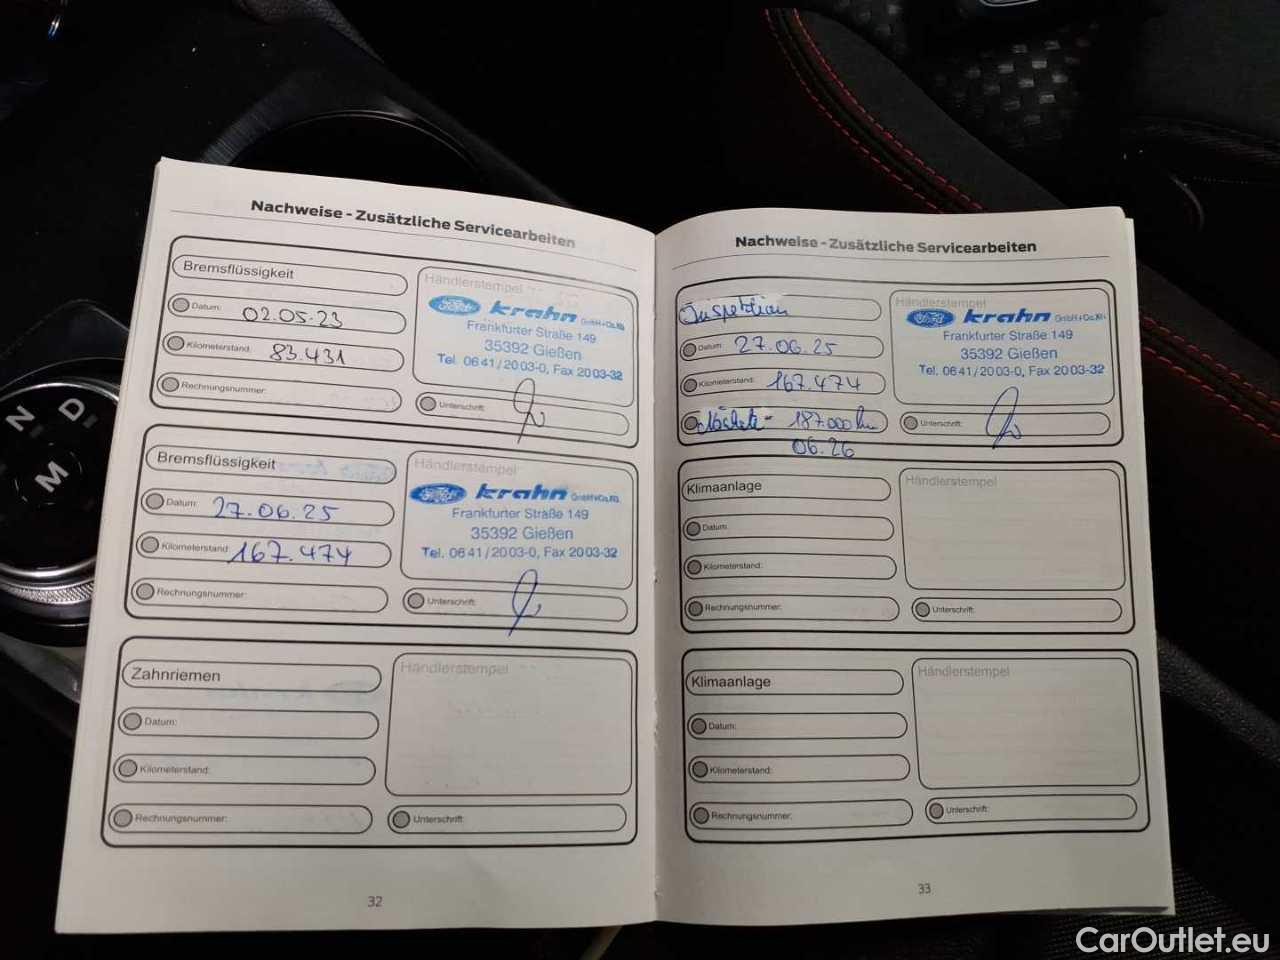 N
D
M
Nachweise - Zusätzliche Servicearbeiten
Bremsflüssigkeit
Datum: 02.05.23
Kilometerstand: 83.431
Rechnungsnummer:
Händlerstempel
Ford krahn GmbH+Co.KG
Frankfurter Straße 149
35392 Gießen
Tel. 06 41 / 20 03-0, Fax 20 03-32
Unterschrift:
Bremsflüssigkeit
Datum: 27.06.25
Kilometerstand: 167.474
Rechnungsnummer:
Händlerstempel
Ford krahn GmbH+Co.KG
Frankfurter Straße 149
35392 Gießen
Tel. 06 41 / 20 03-0, Fax 20 03-32
Unterschrift:
Zahnriemen
Datum:
Kilometerstand:
Rechnungsnummer:
Händlerstempel
Unterschrift:
32
Nachweise - Zusätzliche Servicearbeiten
Inspektion
Datum: 27.06.25
Kilometerstand: 167.474
Nächste - 187.000 km
06.26
Händlerstempel
Ford krahn GmbH+Co.KG
Frankfurter Straße 149
35392 Gießen
Tel. 06 41 / 20 03-0, Fax 20 03-32
Unterschrift:
Klimaanlage
Datum:
Kilometerstand:
Rechnungsnummer:
Händlerstempel
Unterschrift:
Klimaanlage
Datum:
Kilometerstand:
Rechnungsnummer:
Händlerstempel
Unterschrift:
33
CarOutlet.eu